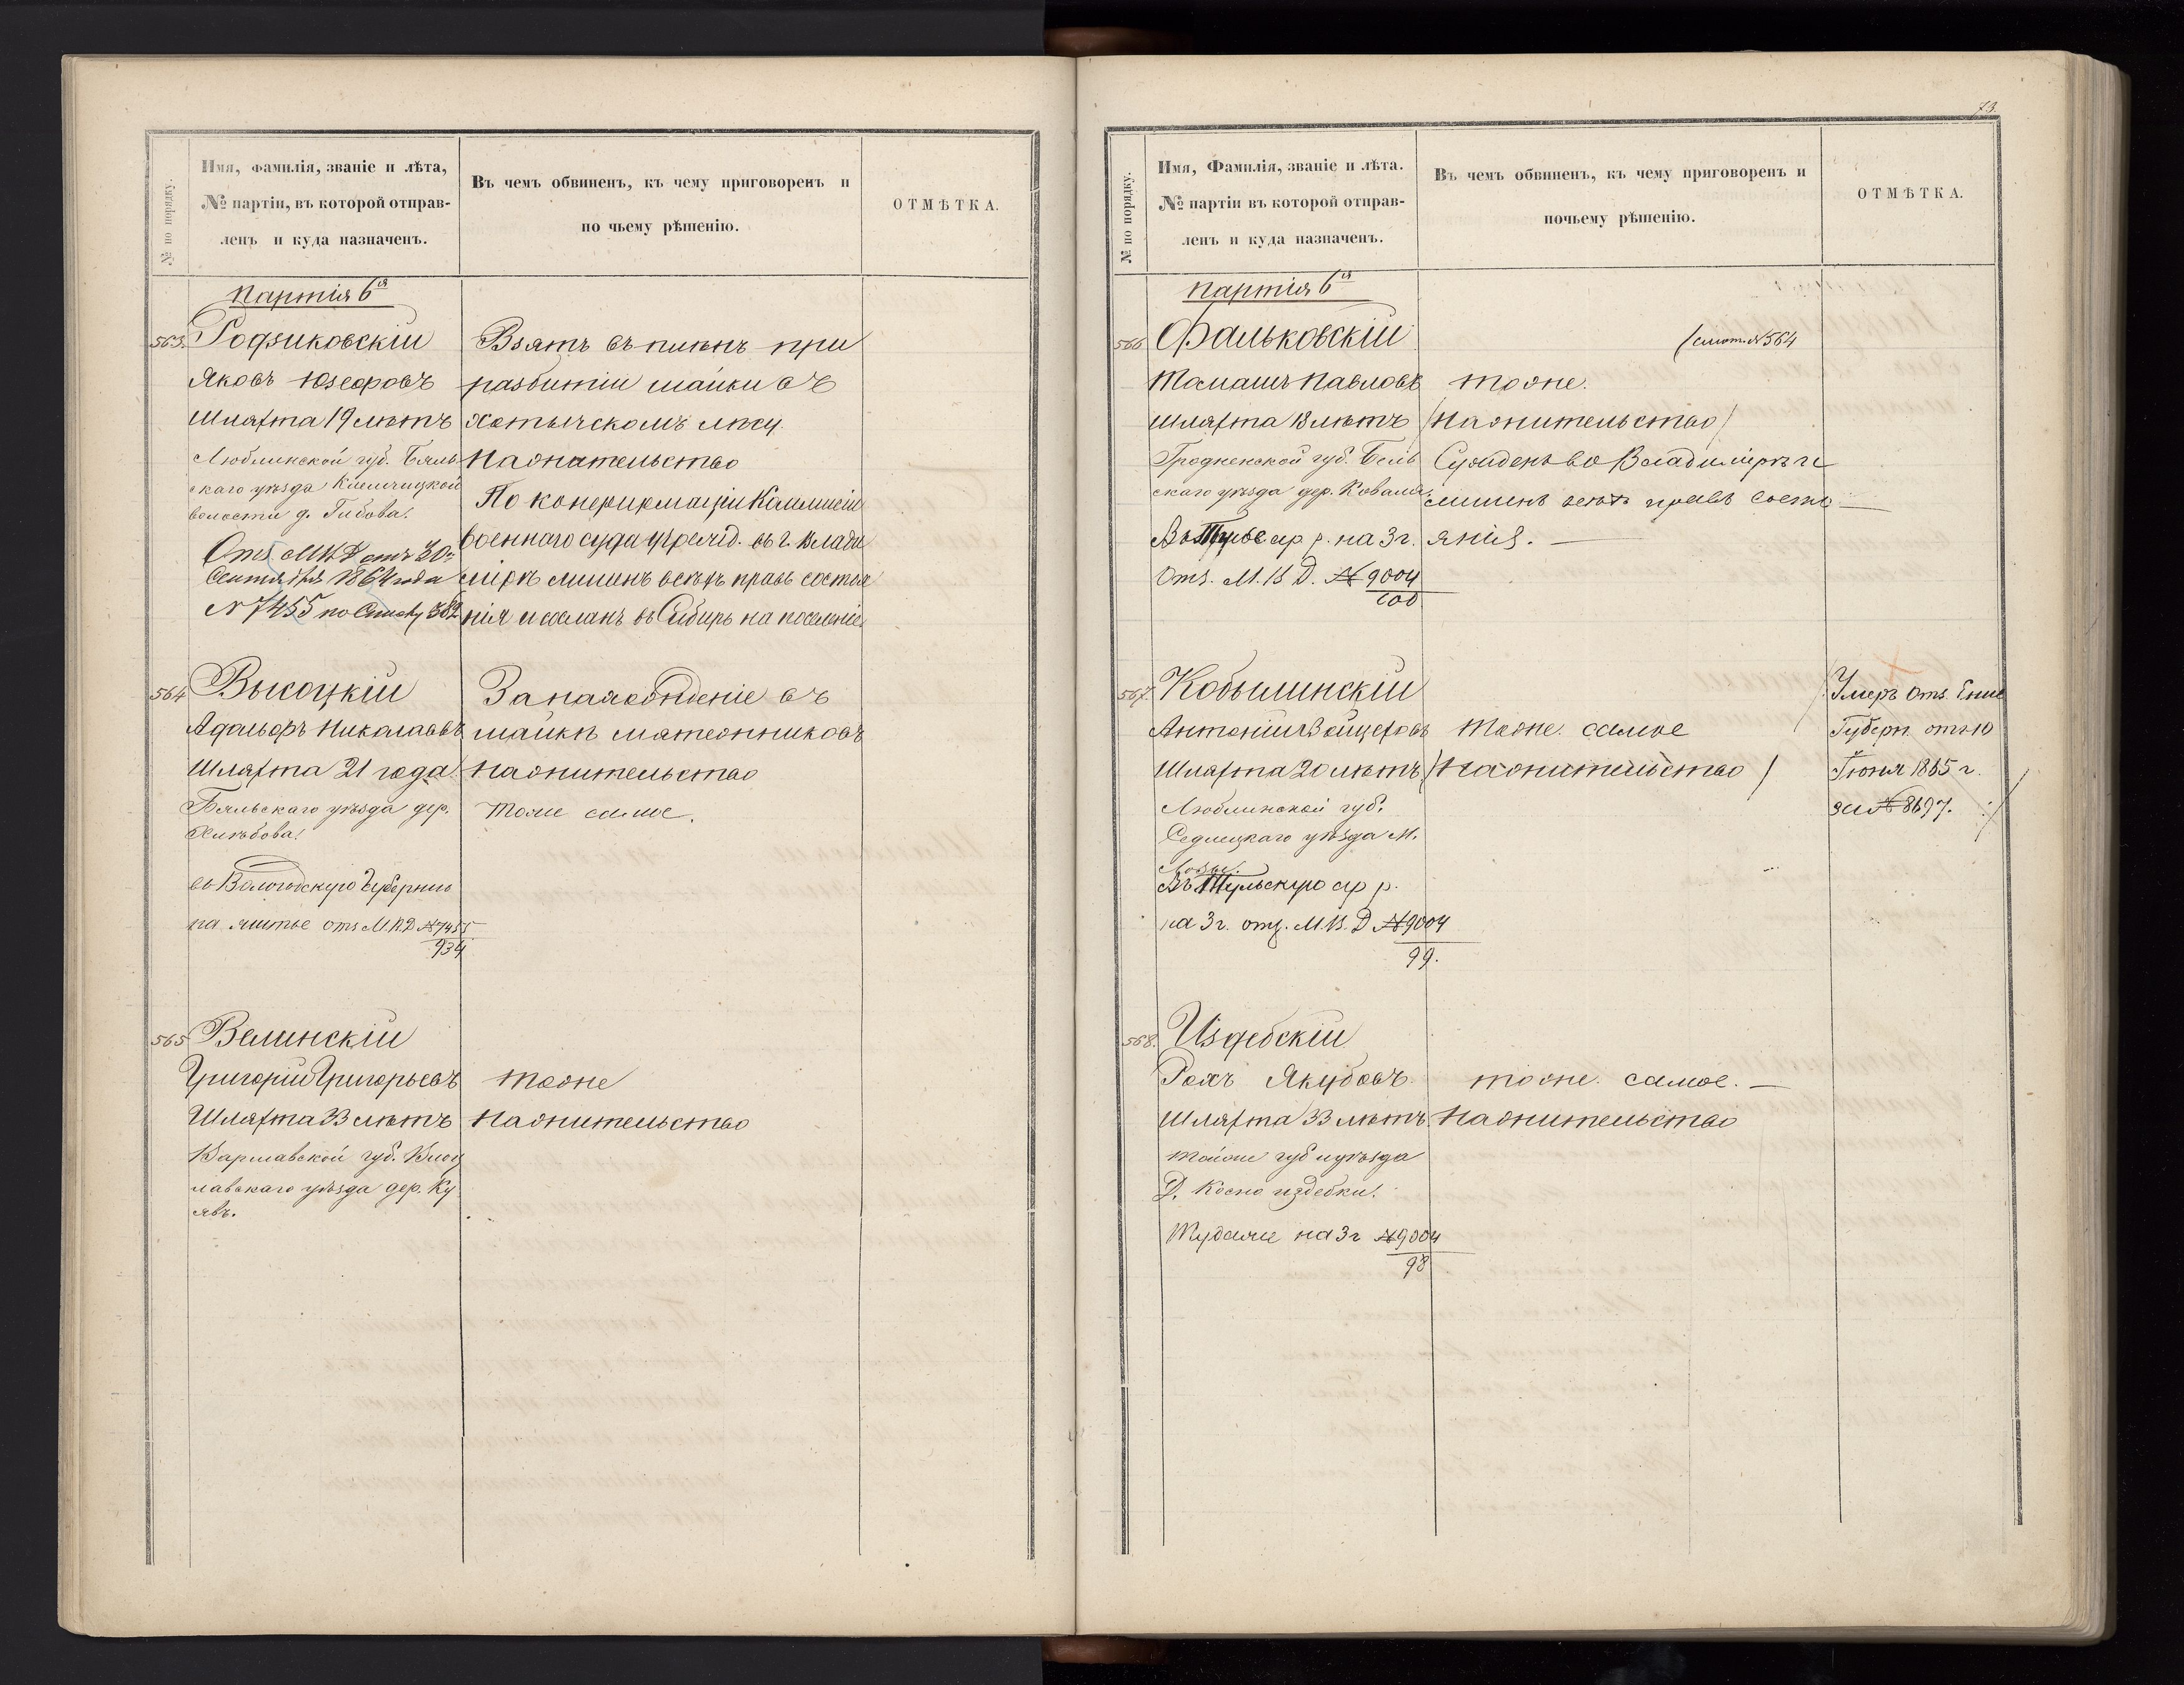 № по порядку.
Имя, фамилія, званіе и лѣта,
№ партіи, въ которой отправ-
ленъ и куда назначенъ.
Въ чемъ обвиненъ, къ чему приговоренъ и
по чьему рѣшенію.
ОТМѢТКА.
партія 6я
563. Родзиковскіи
Яковъ Юзефовъ
Шляхта 19 лѣтъ
Люблинской губ. Бяль
скаго уѣзда
волости д.
Отз. М.В.Д. отъ 30го
Сентября 1864 года
№ 7455 по Списку 382
Взятъ въ плѣнъ при
разбитіи шайки въ
Хотычскомъ лѣсу
На жительство
По конфирмаціи Коммисіи
военнаго суда учрежд. въ г. Влади
мірѣ лишенъ всѣхъ правъ состоя
нія и сосланъ въ Сибирь на поселеніе.
564 Высоцкіи
Адольфъ Николаевъ
Шляхта 21 года
Бяльскаго уѣзда дер.
Хлѣбова.
въ Вологодскую Губернію
на житье отз М.В.Д. № 7455
934
За нахожденіе въ
шайкѣ мятежниковъ
на жительство
тоже самое.
565 Велинскіи
Григоріи Григорьевъ
Шляхта 33 лѣтъ
Варшавской губ. Влоц
лавскаго уѣзда дер. Ку
явъ.
тоже
на жительство
73
№ по порядку.
Имя, Фамилія, званіе и лѣта.
№ партіи въ которой отправ-
ленъ и куда назначенъ.
Въ чемъ обвиненъ, къ чему приговоренъ и
почьему рѣшенію.
ОТМѢТКА.
партія 6я
566 Фальковскіи
Томашъ Павловъ
Шляхта 18 лѣтъ
Гродненской губ. Бель
скаго уѣзда дер.
р. на 3 г.
Отз. М.В.Д. № 9004
100
/смот. № 564
тоже.
/на жительство/
Сужденъ во Владимірѣ и
лишенъ всѣхъ правъ состо
янія. —
567. Кобылинскіи
Антоніи Войцеховъ
Шляхта 20 лѣтъ
Люблинской губ.
Седлецкаго уѣзда М.
Лозы.
Въ Тульскую ар р.
на 3 г. отз. М.В.Д № 9004
99.
тоже. самое
/на жительство/
Умеръ отз. Енис
Губерн. отъ 10
Іюня 1865 г.
за № 8697.
568. Издебскіи
Рохъ Якубовъ.
Шляхта 33 лѣтъ
тойже губ и уѣзда
Д. Косно издебки.
Туда же на 3 г № 9004
98
тоже. самое. —
на жительство